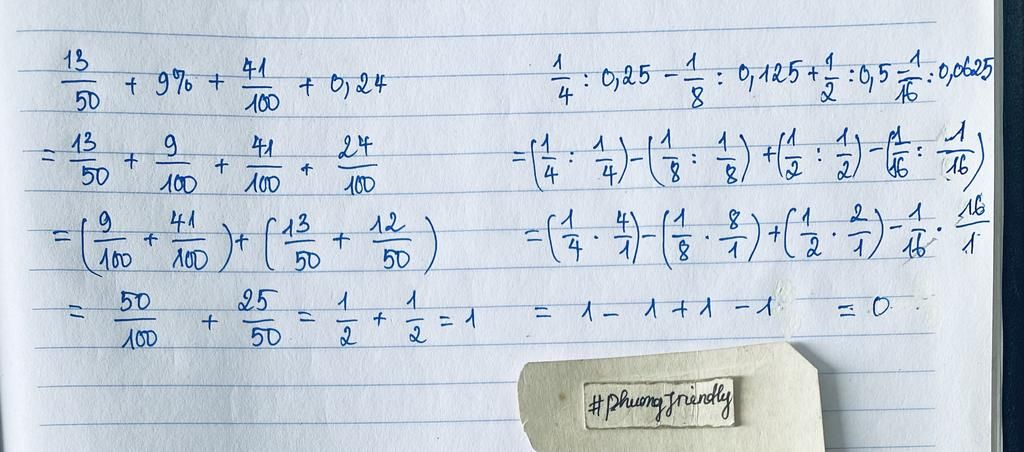 13/50 + 9% + 41/100 + 0,24
= 13/50 + 9/100 + 41/100 + 24/100
= (9/100 + 41/100) + (13/50 + 12/50)
= 50/100 + 25/50 = 1/2 + 1/2 = 1
1/4 : 0,25 - 1/8 : 0,125 + 1/2 : 0,5 - 1/16 : 0,0625
= (1/4 : 1/4) - (1/8 : 1/8) + (1/2 : 1/2) - (1/16 : 1/16)
= (1/4 . 4/1) - (1/8 . 8/1) + (1/2 . 2/1) - 1/16 . 16/1
= 1 - 1 + 1 - 1 = 0
#phuongfriendly